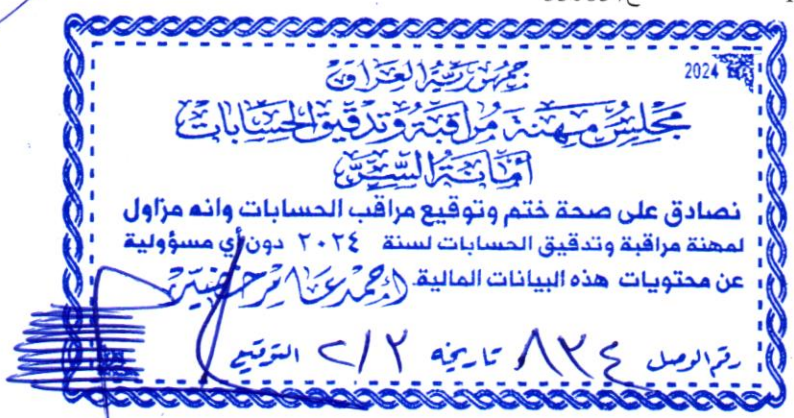 2024
جمهورية العراق
مجلس مهنة مراقبة وتدقيق الحسابات
أمانة السر
نصادق على صحة ختم وتوقيع مراقب الحسابات وانه مزاول
لمهنة مراقبة وتدقيق الحسابات لسنة ٢٠٢٤ دون أي مسؤولية
عن محتويات هذه البيانات المالية. احمد عامر
رقم الوصل ٨٣٤ تاريخه ٢/٢ التوقيع